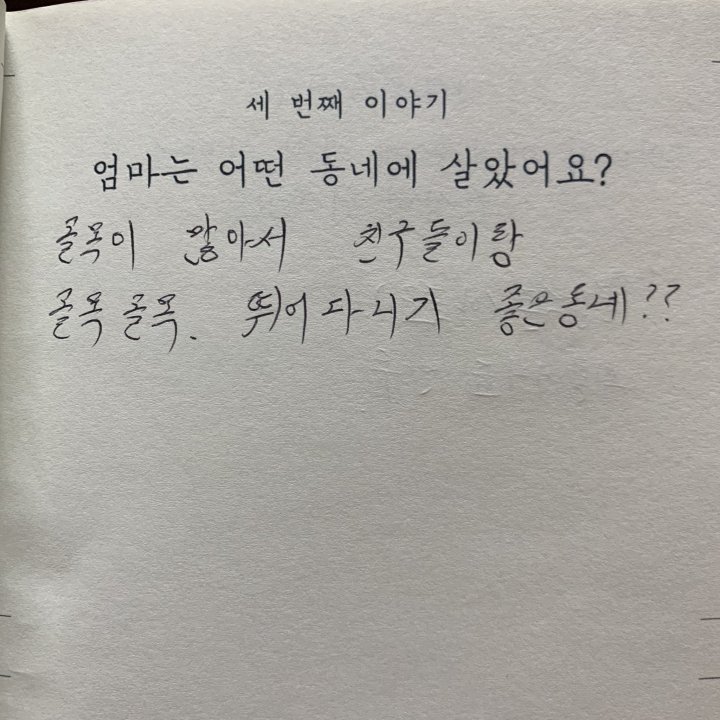 세 번째 이야기
엄마는 어떤 동네에 살았어요?
골목이 많아서 친구들이랑
골목 골목. 뛰어다니기 좋은동네??